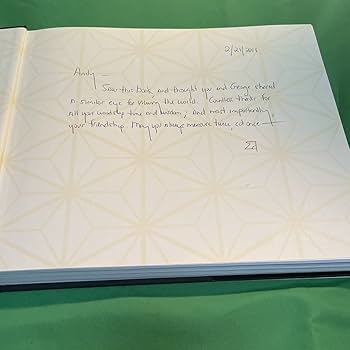 2/21/2013
Andy —
Saw this book and thought you and George shared
a similar eye for viewing the world. Countless thanks for
all your woodshop time and wisdom, and most importantly
your friendship. May you always measure twice, cut once —